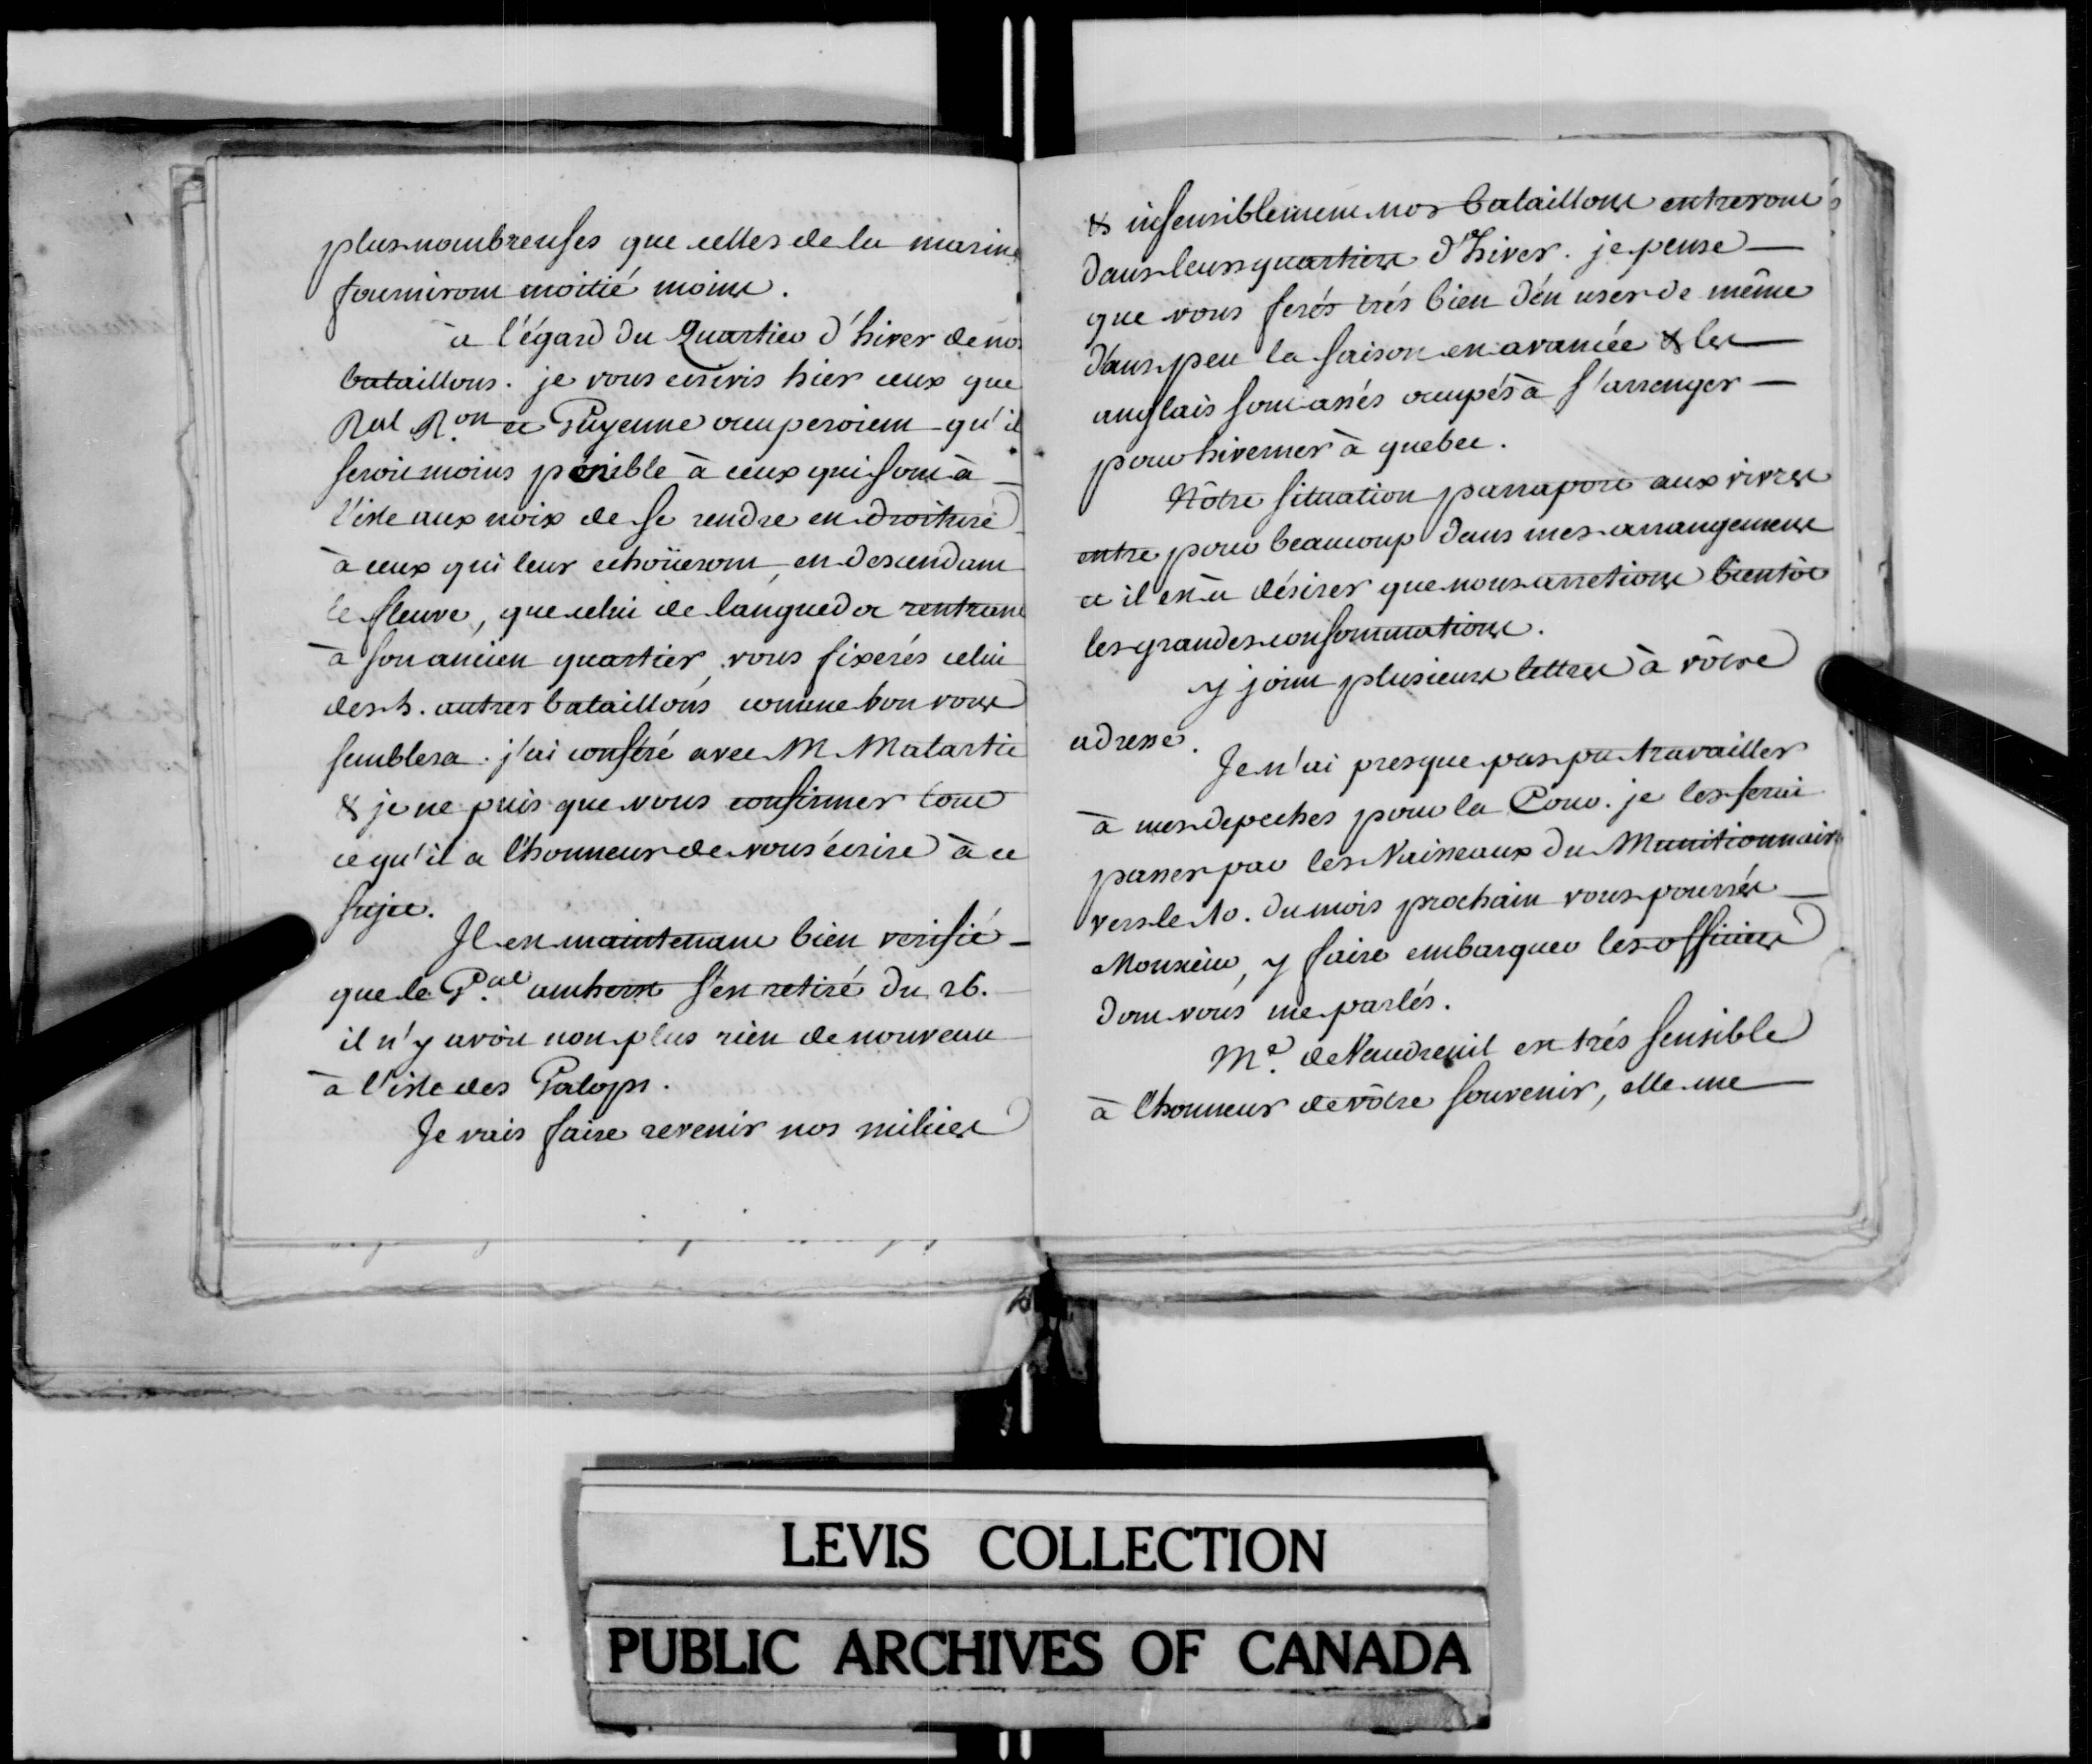 plus nombreuses que celles de la marine
fourniront moitié moins.
à l'égard du Quartier d'hiver de nos
bataillons. je vous écrivis hier ceux que
Ral Ron et Guyenne occuperoient qu'il
seroit moins pénible à ceux qui sont à
l'isle aux noix de se rendre en droiture
à ceux qui leur echoüeront, en descendant
le fleuve, que celui de languedoc rentrant
à son ancien quartier, vous fixerés celui
des 5. autres bataillons comme bon vous
semblera. j'ai conféré avec M Malartic
& je ne puis que vous confirmer tout
ce qu'il a l'honneur de vous écrire à ce
sujet.
Il est maintenant bien verifié
que le Gal amherst s'est retiré du 26.
il n'y avoit non plus rien de nouveau
à l'isle des Galops.
Je vais faire revenir nos milices
& insensiblement nos bataillons entreront
dans leurs quartiers d'hiver. je pense
que vous ferés trés bien d'en user de même
dans peu la saison est avancée & les
anglais sont assés occupés à s'arrenger
pour hiverner à quebec.
Nôtre situation par raport aux vivres
entre pour beaucoup dans mes arrangements
et il est à désirer que nous arretions bientôt
les grandes consommations.
y joint plusieurs lettres à vôtre
adresse.
Je n'ai presque pas pu travailler
à mes depeches pour la Cour. je les ferai
passer par les Vaisseaux du Munitionnaire
vers le 10. du mois prochain vous pourrés
Monsieur, y faire embarquer les officiers
dont vous me parlés.
Me. de Vaudreuil est trés sensible
à l'honneur de vôtre souvenir, elle me
LEVIS COLLECTION
PUBLIC ARCHIVES OF CANADA